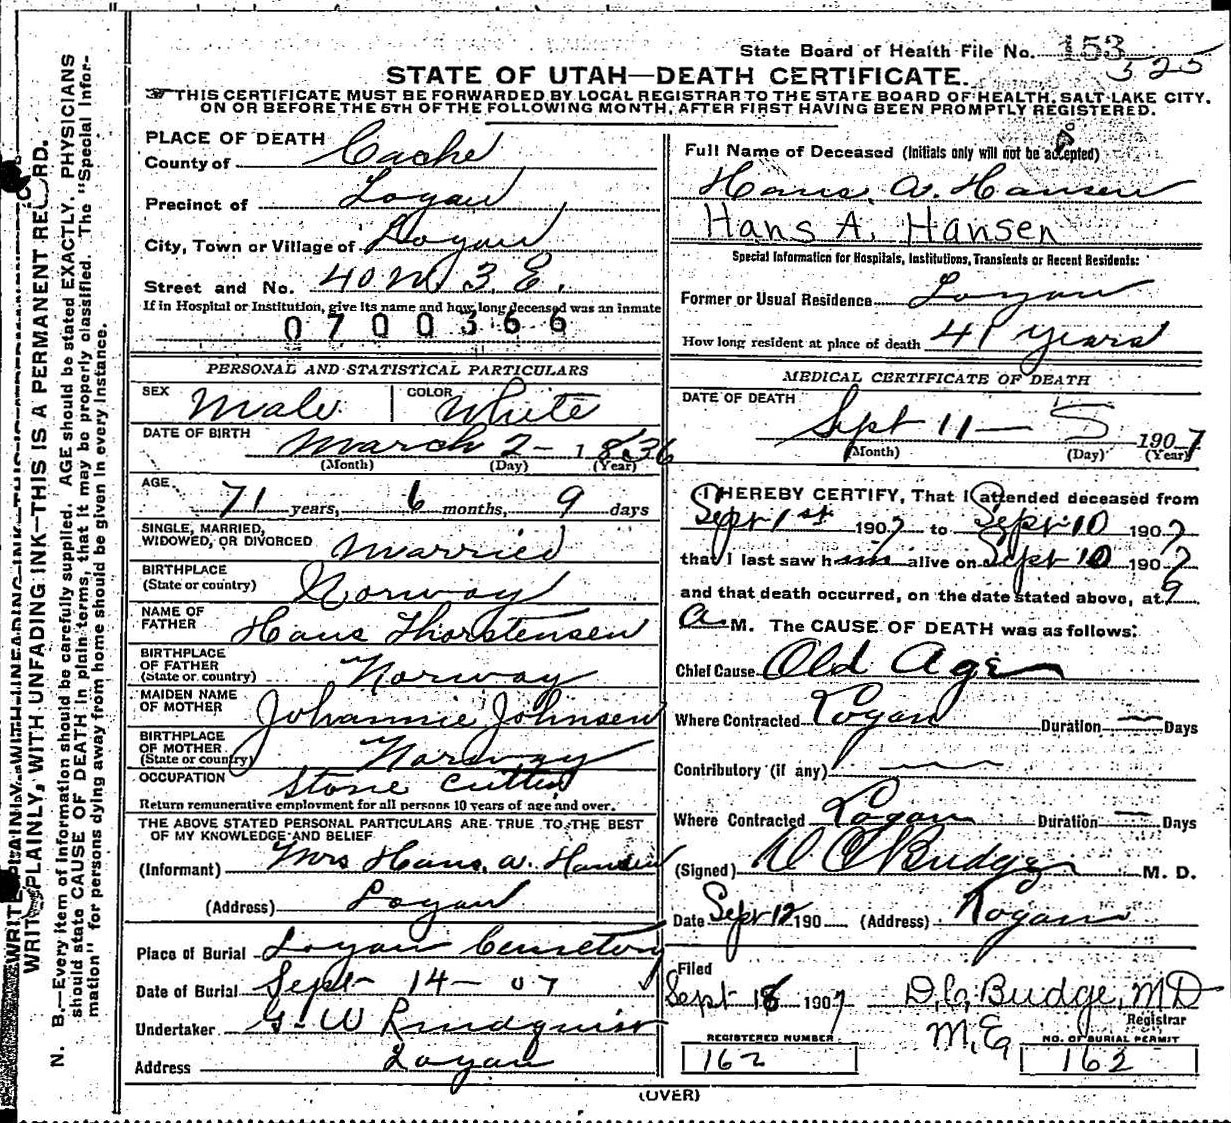 State Board of Health File No. 153
525
STATE OF UTAH—DEATH CERTIFICATE.
THIS CERTIFICATE MUST BE FORWARDED BY LOCAL REGISTRAR TO THE STATE BOARD OF HEALTH, SALT LAKE CITY,
ON OR BEFORE THE 5TH OF THE FOLLOWING MONTH, AFTER FIRST HAVING BEEN PROMPTLY REGISTERED.
WRITE PLAINLY, WITH UNFADING INK—THIS IS A PERMANENT RECORD.
N. B.—Every item of information should be carefully supplied. AGE should be stated EXACTLY. PHYSICIANS
should state CAUSE OF DEATH in plain terms, that it may be properly classified. The "Special Infor-
mation" for persons dying away from home should be given in every instance.
PLACE OF DEATH
County of Cache
Precinct of Logan
City, Town or Village of Logan
Street and No. 40 N 3 E.
If in Hospital or Institution, give its name and how long deceased was an inmate
0700366
PERSONAL AND STATISTICAL PARTICULARS
SEX Male COLOR White
DATE OF BIRTH March 2 - 1836
(Month) (Day) (Year)
AGE 71 years, 6 months, 9 days
SINGLE, MARRIED,
WIDOWED, OR DIVORCED Married
BIRTHPLACE
(State or country) Norway
NAME OF
FATHER Hans Thorstensen
BIRTHPLACE
OF FATHER
(State or country) Norway
MAIDEN NAME
OF MOTHER Johannie Johnsen
BIRTHPLACE
OF MOTHER
(State or country) Norway
OCCUPATION Stone Cutter
Return remunerative employment for all persons 10 years of age and over.
THE ABOVE STATED PERSONAL PARTICULARS ARE TRUE TO THE BEST
OF MY KNOWLEDGE AND BELIEF
(Informant) Mrs Hans. A. Hansen
(Address) Logan
Place of Burial Logan Cemetery
Date of Burial Sept - 14 - 07
Undertaker G. W Lindquist
Address Logan
Full Name of Deceased (Initials only will not be accepted)
Hans. A. Hansen
Hans A. Hansen
Special Information for Hospitals, Institutions, Transients or Recent Residents:
Former or Usual Residence Logan
How long resident at place of death 41 years
MEDICAL CERTIFICATE OF DEATH
DATE OF DEATH
Sept 11 — 5 1907
(Month) (Day) (Year)
I HEREBY CERTIFY, That I attended deceased from
Sept 1st 1907 to Sept 10 1907
that I last saw him alive on Sept 10 1907
and that death occurred, on the date stated above, at 9
A. M. The CAUSE OF DEATH was as follows:
Chief Cause Old Age
Where Contracted Logan Duration — Days
Contributory (if any)
Where Contracted Logan Duration — Days
(Signed) D C Budge M. D.
Date Sept 12 190 (Address) Logan
Filed
Sept 18 1907 D. C. Budge, MD
Registrar
REGISTERED NUMBER NO. OF BURIAL PERMIT
162 162
(OVER)